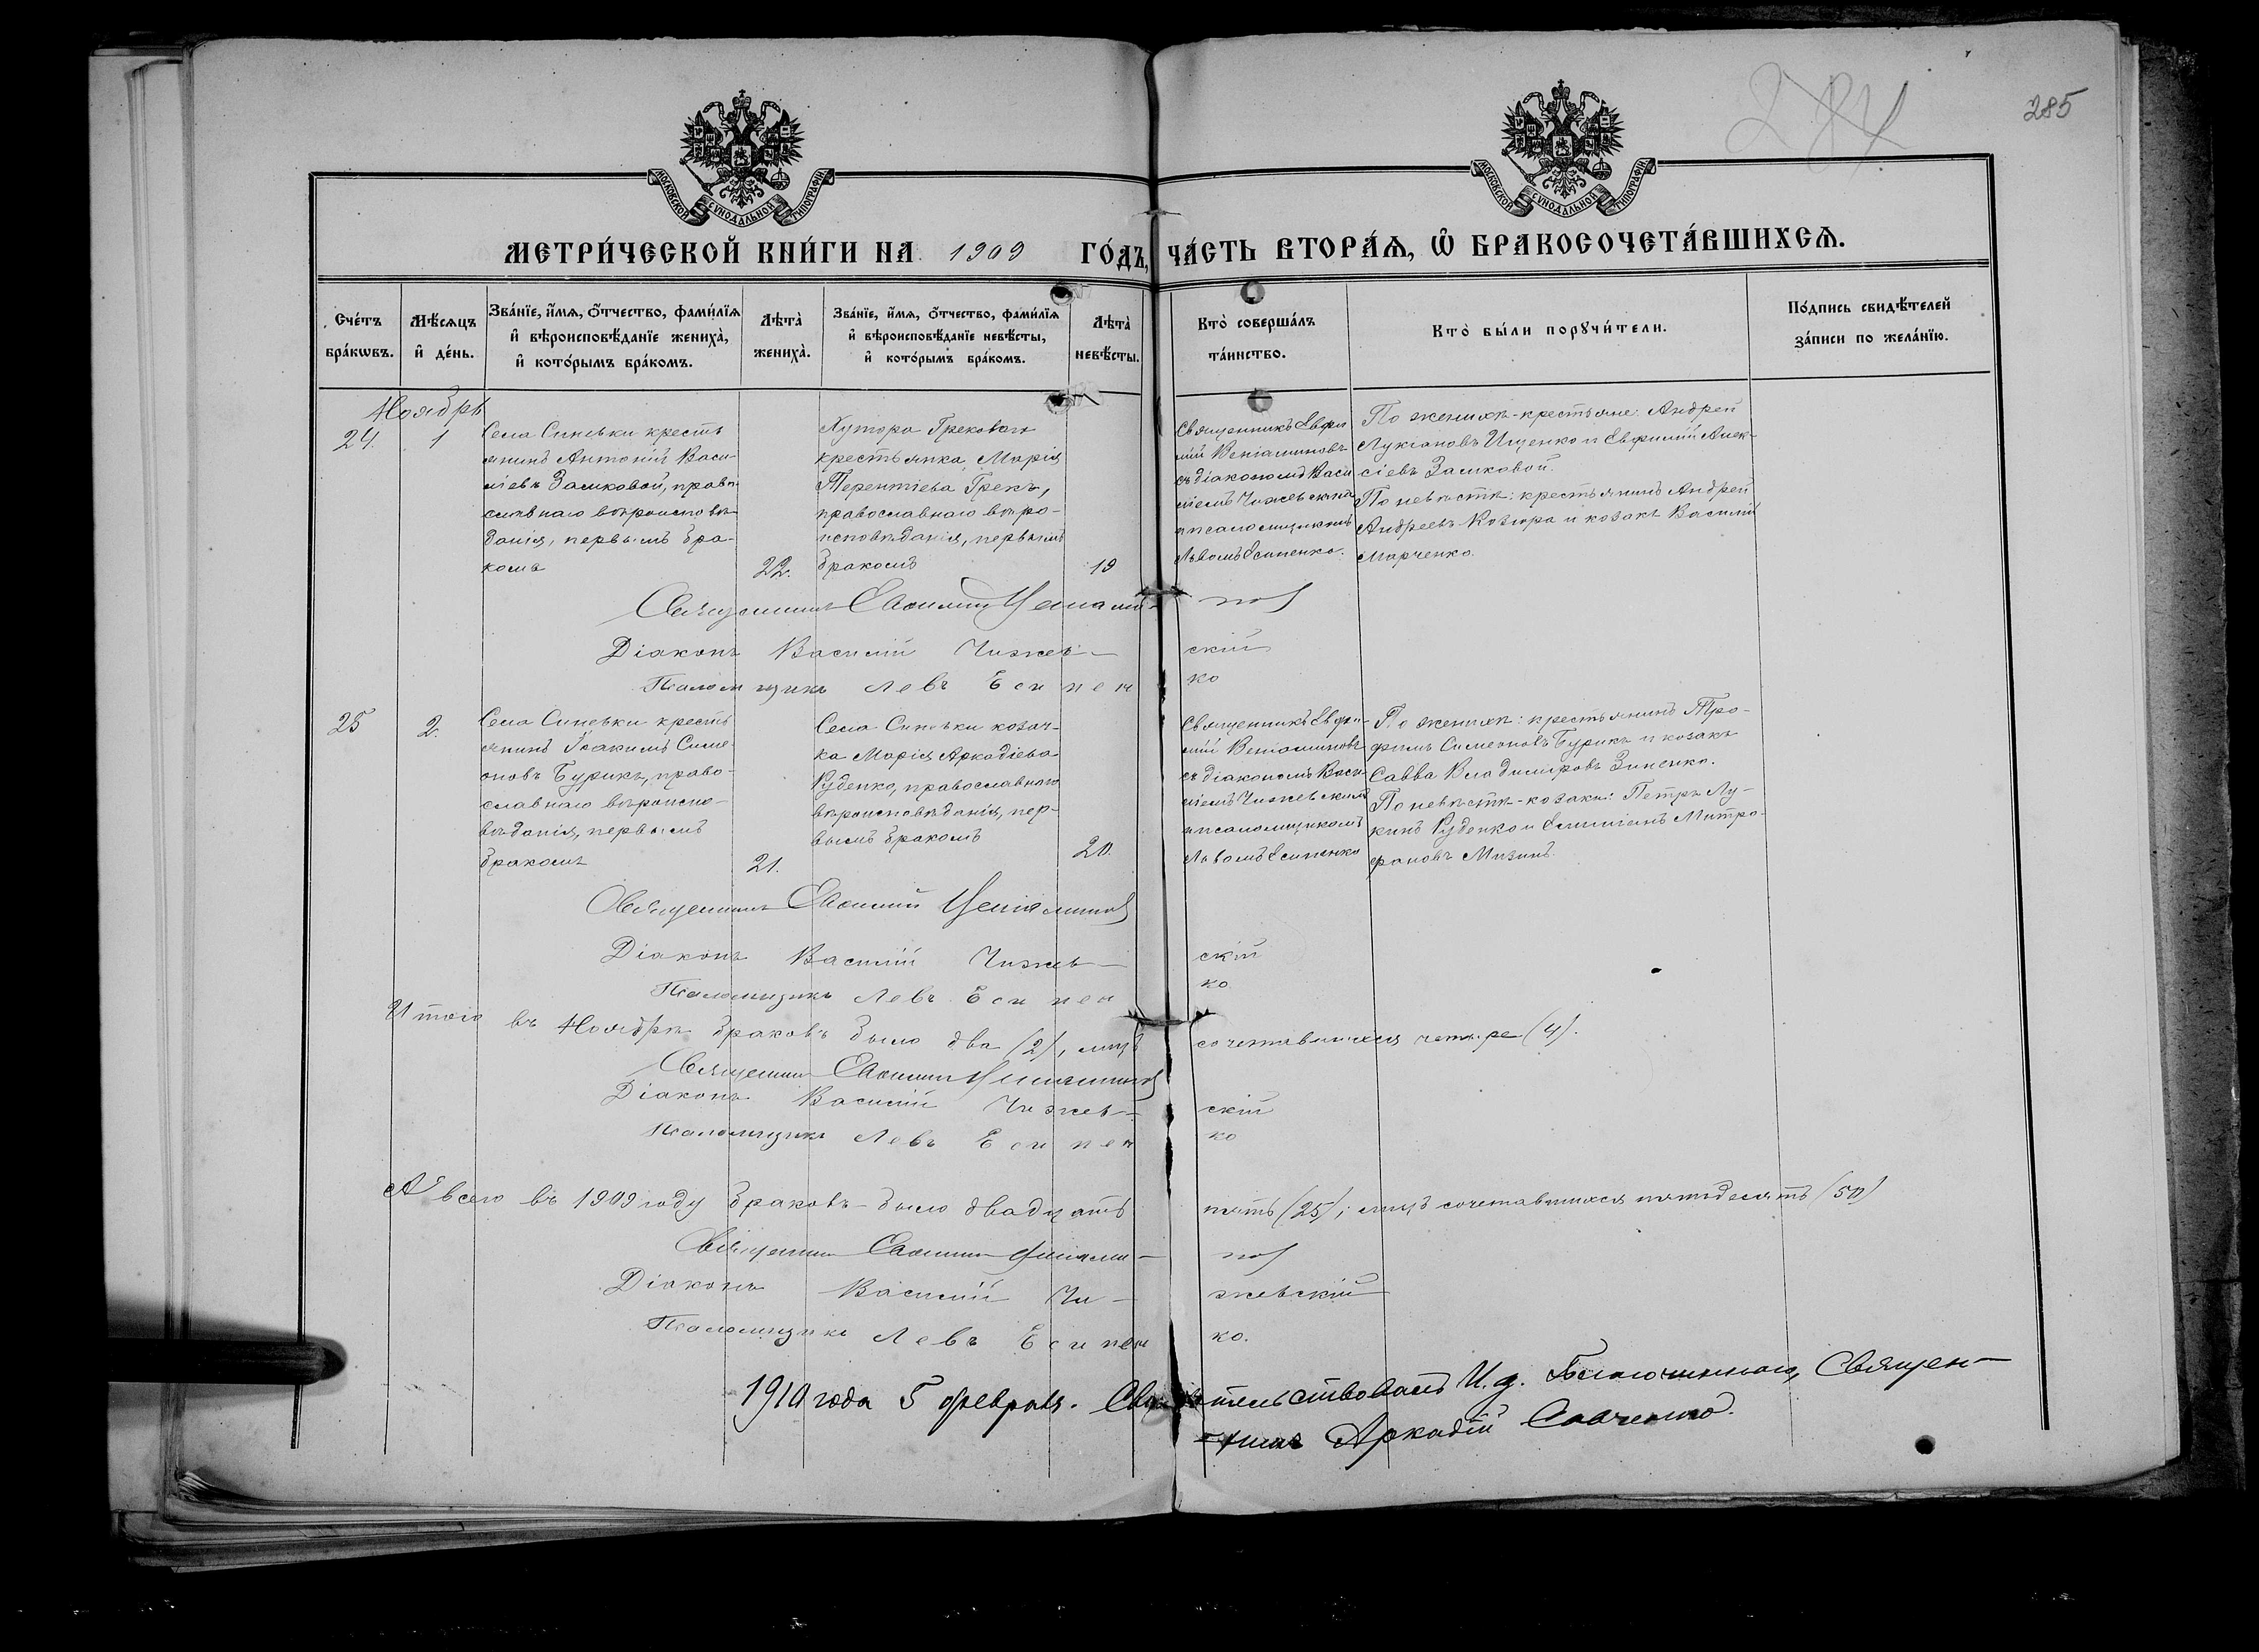 284
285
МОСКОВСКОЙ СУНОДАЛЬНОЙ ТИПОГРАФІИ
МОСКОВСКОЙ СУНОДАЛЬНОЙ ТИПОГРАФІИ
МЕТРИ́ЧЕСКОЙ КНИ́ГИ НА 1909 ГО́ДЪ, ЧА́СТЬ ВТОРА́Ѧ, Ѡ҆ БРАКОСОЧЕТА́ВШИХСѦ.
Сче́тъ бра́кѡвъ.
Мѣ́сѧцъ и҆ де́нь.
Зва́нїе, и҆́мѧ, ѻ҆́тчество, фами́лїѧ
и҆ вѣроисповѣ́данїе жениха̀,
и҆ кото́рымъ бра́комъ.
Лѣта̀ жениха̀.
Зва́нїе, и҆́мѧ, ѻ҆́тчество, фами́лїѧ
и҆ вѣроисповѣ́данїе невѣ́сты,
и҆ кото́рымъ бра́комъ.
Лѣта̀ невѣ́сты.
Кто̀ соверша́лъ
та́инство.
Кто̀ бы́ли порꙋчи́тели.
По́дпись свидѣ́телей
за́писи по жела́нїю.
Ноябрь
24. 1
Села Синевки кресть
янинъ Антоній Васи-
ліевъ Замковой, право
славнаго вѣроисповѣ-
данія, первымъ бра-
комъ
22.
Хутора Грековаго
крестьянка Марія
Терентіева Грекъ,
православнаго вѣро-
исповѣданія, первымъ
бракомъ
19
Священникъ Евфи
мій Веніаминовъ
съ діакономъ Васи
ліемъ Чижевскимъ
и псаломщикомъ
Львомъ Есипенко.
По женихѣ-крестьяне: Андрей
Лукіановъ Ищенко и Евфимій Алек-
сіевъ Замковой.
По невѣстѣ: крестьянинъ Андрей
Андреевъ Козюра и козакъ Василій
Марченко.
Священникъ Евфимій Веніами-новъ
Діаконъ Василій Чижев-скій
Псаломщикъ Левъ Есипенко
25 2.
Села Синевки кресть
янинъ Іоакимъ Симе
оновъ Бурикъ, право-
славнаго вѣроиспо-
вѣданія, первымъ
бракомъ
21.
Села Синевки козач-
ка Марія Аркадіева
Руденко, православнаго
вѣроисповѣданія, пер-
вымъ бракомъ
20.
Священникъ Евфи-
мій Веніаминовъ
съ діакономъ Васи-
ліемъ Чижевскимъ
и псаломщикомъ
Львомъ Есипенко
По женихѣ: крестьянинъ Тро-
фимъ Симеоновъ Бурикъ и козакъ
Савва Владиміровъ Зиненко.
По невѣстѣ-козаки: Петръ Лу-
кинъ Руденко и Емиліанъ Митро-
фановъ Мизинъ.
Священникъ Евфимій Веніаминовъ
Діаконъ Василій Чижев-скій
Псаломщикъ Левъ Есипенко.
Итого въ Ноябрѣ браковъ было два (2), лицъ сочетавшихся четыре (4).
Священникъ Евфимій Веніаминовъ
Діаконъ Василій Чижев-скій
Псаломщикъ Левъ Есипенко
А всего въ 1909 году браковъ было двадцать пять (25); лицъ сочетавшихся пятьдесятъ (50)
Священникъ Евфимій Веніами-новъ
Діаконъ Василій Чи-жевскій
Псаломщикъ Левъ Есипенко.
1910 года 5 февраля. Свидѣтельствовалъ И. д. Благочиннаго, Священ-
никъ Аркадій Савченко.